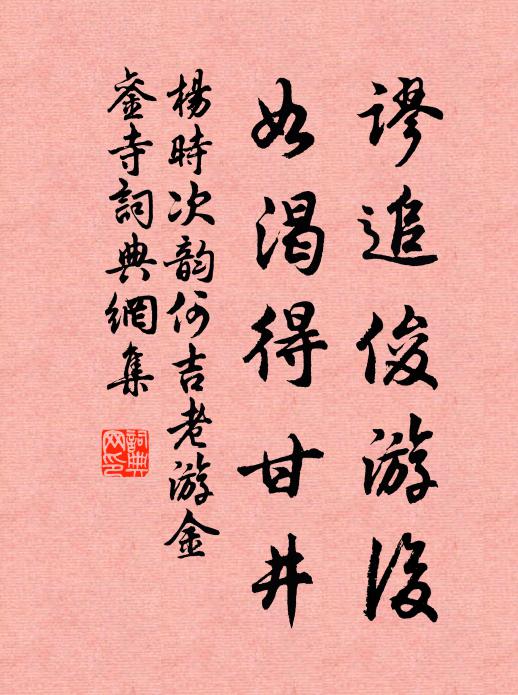 謬追俊游後
如渴得甘井
楊時次韵何吉老游金
銮寺詞典網集
詞典网印